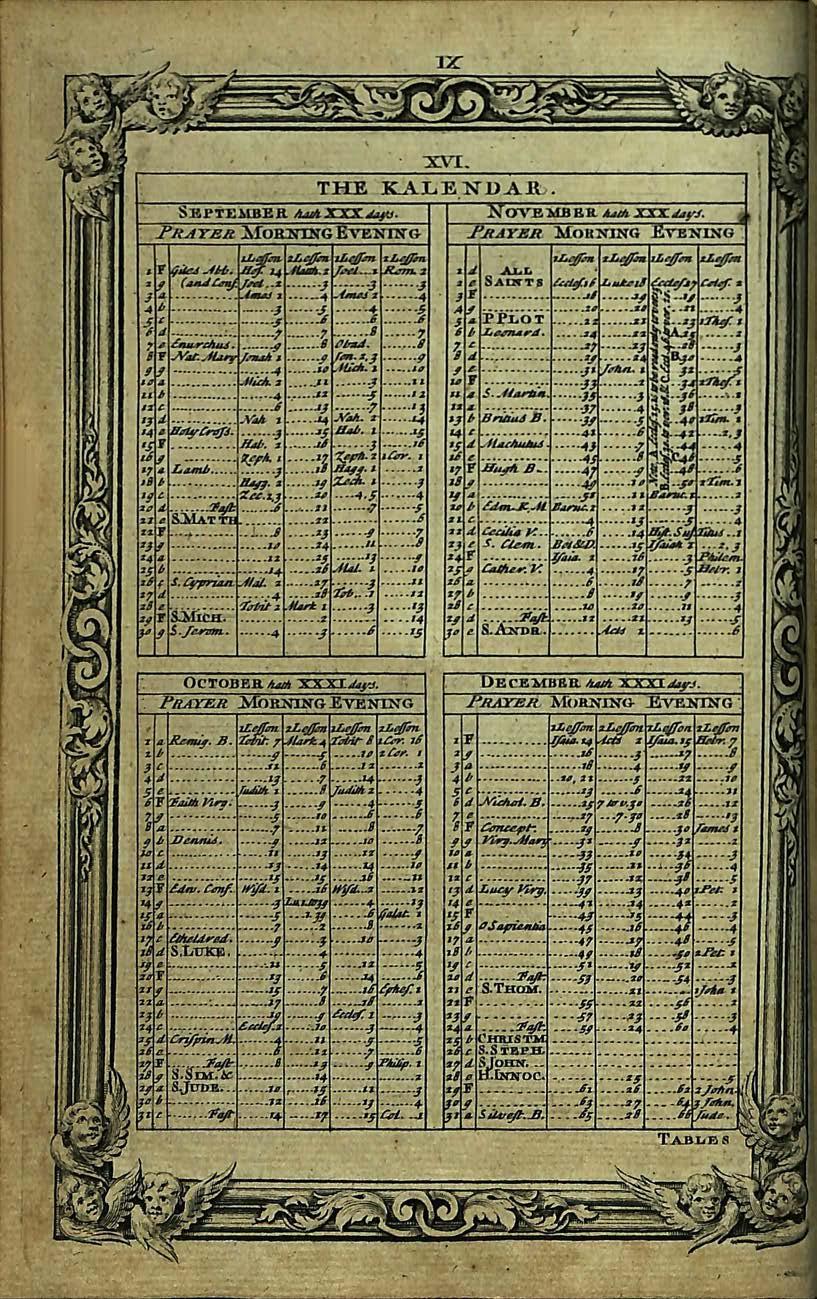 IX
XVI.
THE KALENDAR.
SEPTEMBER hath XXX days.
PRAYER MORNING EVENING
1Lesson 2Lesson 1Lesson 2Lesson
1 F Giles Abb. Hos. 14 Matth. 2 Joel 1 Rom. 2
2 g (and Conf. Joel 2 3 3 3
3 a Amos 1 4 Amos 2 4
4 b 3 5 4 5
5 c 5 6 6 6
6 d 7 7 8 7
7 e Enurchus. 9 8 Obad. 8
8 F Nat. Mary Jonah 1 9 Jon. 2, 3 9
9 g 4 10 Mich. 1 10
10 a Mich. 2 11 3 11
11 b 4 12 5 12
12 c 6 13 7 13
13 d Nah. 1 14 Nah. 2 14
14 e Holy Cross. 3 15 Hab. 1 15
15 F Hab. 2 16 3 16
16 g Zeph. 1 17 Zeph. 2 1 Cor. 1
17 a Lamb. 3 18 Hagg. 1 2
18 b Hagg. 2 19 Zech. 1 3
19 c Zec. 2,3 20 4, 5 4
20 d Fast 6 21 7 5
21 e S. MATTH. 22 6
22 F 8 23 9 7
23 g 10 24 11 8
24 a 12 25 13 9
25 b 14 26 Mal. 1 10
26 c S. Cyprian Mal. 2 27 3 11
27 d 4 28 Tob. 1 12
28 e Tobit 2 Mark 1 3 13
29 F S. MICH. 2 14
30 g S. Jerom. 4 3 6 15
NOVEMBER hath XXX days.
PRAYER MORNING EVENING
1Lesson 2Lesson 1Lesson 2Lesson
1 d ALL
2 e SAINTS Eccles 16 Luke 18 Eccles 17 Colos. 2
3 F 18 19 19 3
4 g 20 20 21 4
5 a P. PLOT 22 21 23 1 Thes. 1
6 b Leonard. 24 22 A. 25 2
7 c 27 23 28 3
8 d 29 24 B. 30 4
9 e 31 John. 1 32 5
10 F 33 2 34 2 Thes. 1
11 g S. Martin. 35 3 36 2
12 a 37 4 38 3
13 b Britius B. 39 5 40 1 Tim. 1
14 c 41 6 42 2, 3
15 d Machutus. 43 7 44 4
16 e 45 8 C. 46 5
17 F Hugh B. 47 9 48 6
18 g 49 10 50 2 Tim. 1
19 a 51 11 Baruc. 1 2
20 b Edm. K. M. Baruc. 2 12 3 3
21 c 4 13 5 4
22 d Cecilia V. 6 14 Hist. Sus. Titus 1
23 e S. Clem. Bel & D. 15 Isaiah 1 2, 3
24 F Isaia. 2 16 3 Philem
25 g Cather. V. 4 17 5 Hebr. 1
26 a 6 18 7 2
27 b 8 19 9 3
28 c 10 20 11 4
29 d Fast 12 21 13 5
30 e S. ANDR. Acts 1 6
OCTOBER hath XXXI days.
PRAYER MORNING EVENING
1Lesson 2Lesson 1Lesson 2Lesson
1 a Remig. B. Tobit 7 Mark 4 Tobit 8 1 Cor. 16
2 b 9 5 10 2 Cor. 1
3 c 11 6 12 2
4 d 13 7 14 3
5 e Judith 1 8 Judith 2 4
6 F Faith Virg. 3 9 4 5
7 g 5 10 6 6
8 a 7 11 8 7
9 b Dennis. 9 12 10 8
10 c 11 13 12 9
11 d 13 14 14 10
12 e 15 15 16 11
13 F Edw. Conf. Wisd. 1 16 Wisd. 2 12
14 g 3 Lu. 1. to 39 4 13
15 a 5 1. 39 6 Galat. 1
16 b 7 2 8 2
17 c Etheldred. 9 3 10 3
18 d S. LUKE. 4 4
19 e 11 5 12 5
20 F 13 6 14 6
21 g 15 7 16 Ephes. 1
22 a 17 8 18 2
23 b 19 9 Eccles. 1 3
24 c Eccles. 2 10 3 4
25 d Crispin M. 4 11 5 5
26 e 6 12 7 6
27 F Fast 8 13 9 Philip. 1
28 g S. SIM. & 14 2
29 a S. JUDE. 10 15 11 3
30 b 12 16 13 4
31 c Fast 14 17 15 Col. 1
DECEMBER hath XXXI days.
PRAYER MORNING EVENING
1Lesson 2Lesson 1Lesson 2Lesson
1 F Isaia. 14 Acts 2 Isaia. 15 Hebr. 7
2 g 16 3 17 8
3 a 18 4 19 9
4 b 20, 21 5 22 10
5 c 23 6 24 11
6 d Nichol. B. 25 7 to v. 30 26 12
7 e 27 7. 30 28 13
8 F Concept. 29 8 30 James 1
9 g Virg. Mary 31 9 32 2
10 a 33 10 34 3
11 b 35 11 36 4
12 c 37 12 38 5
13 d Lucy Virg. 39 13 40 1 Pet. 1
14 e 41 14 42 2
15 F 43 15 44 3
16 g O Sapientia 45 16 46 4
17 a 47 17 48 5
18 b 49 18 50 2 Pet. 1
19 c 51 19 52 2
20 d Fast 53 20 54 3
21 e S. THOM. 21 1 John 1
22 F 55 22 56 2
23 g 57 23 58 3
24 a Fast 59 24 60 4
25 b CHRISTM
26 c S. STEPH.
27 d S. JOHN.
28 e H. INNOC. 25 5
29 F 61 26 62 2 John
30 g 63 27 64 3 John.
31 a Silvest. B. 65 28 66 Jude.
TABLES